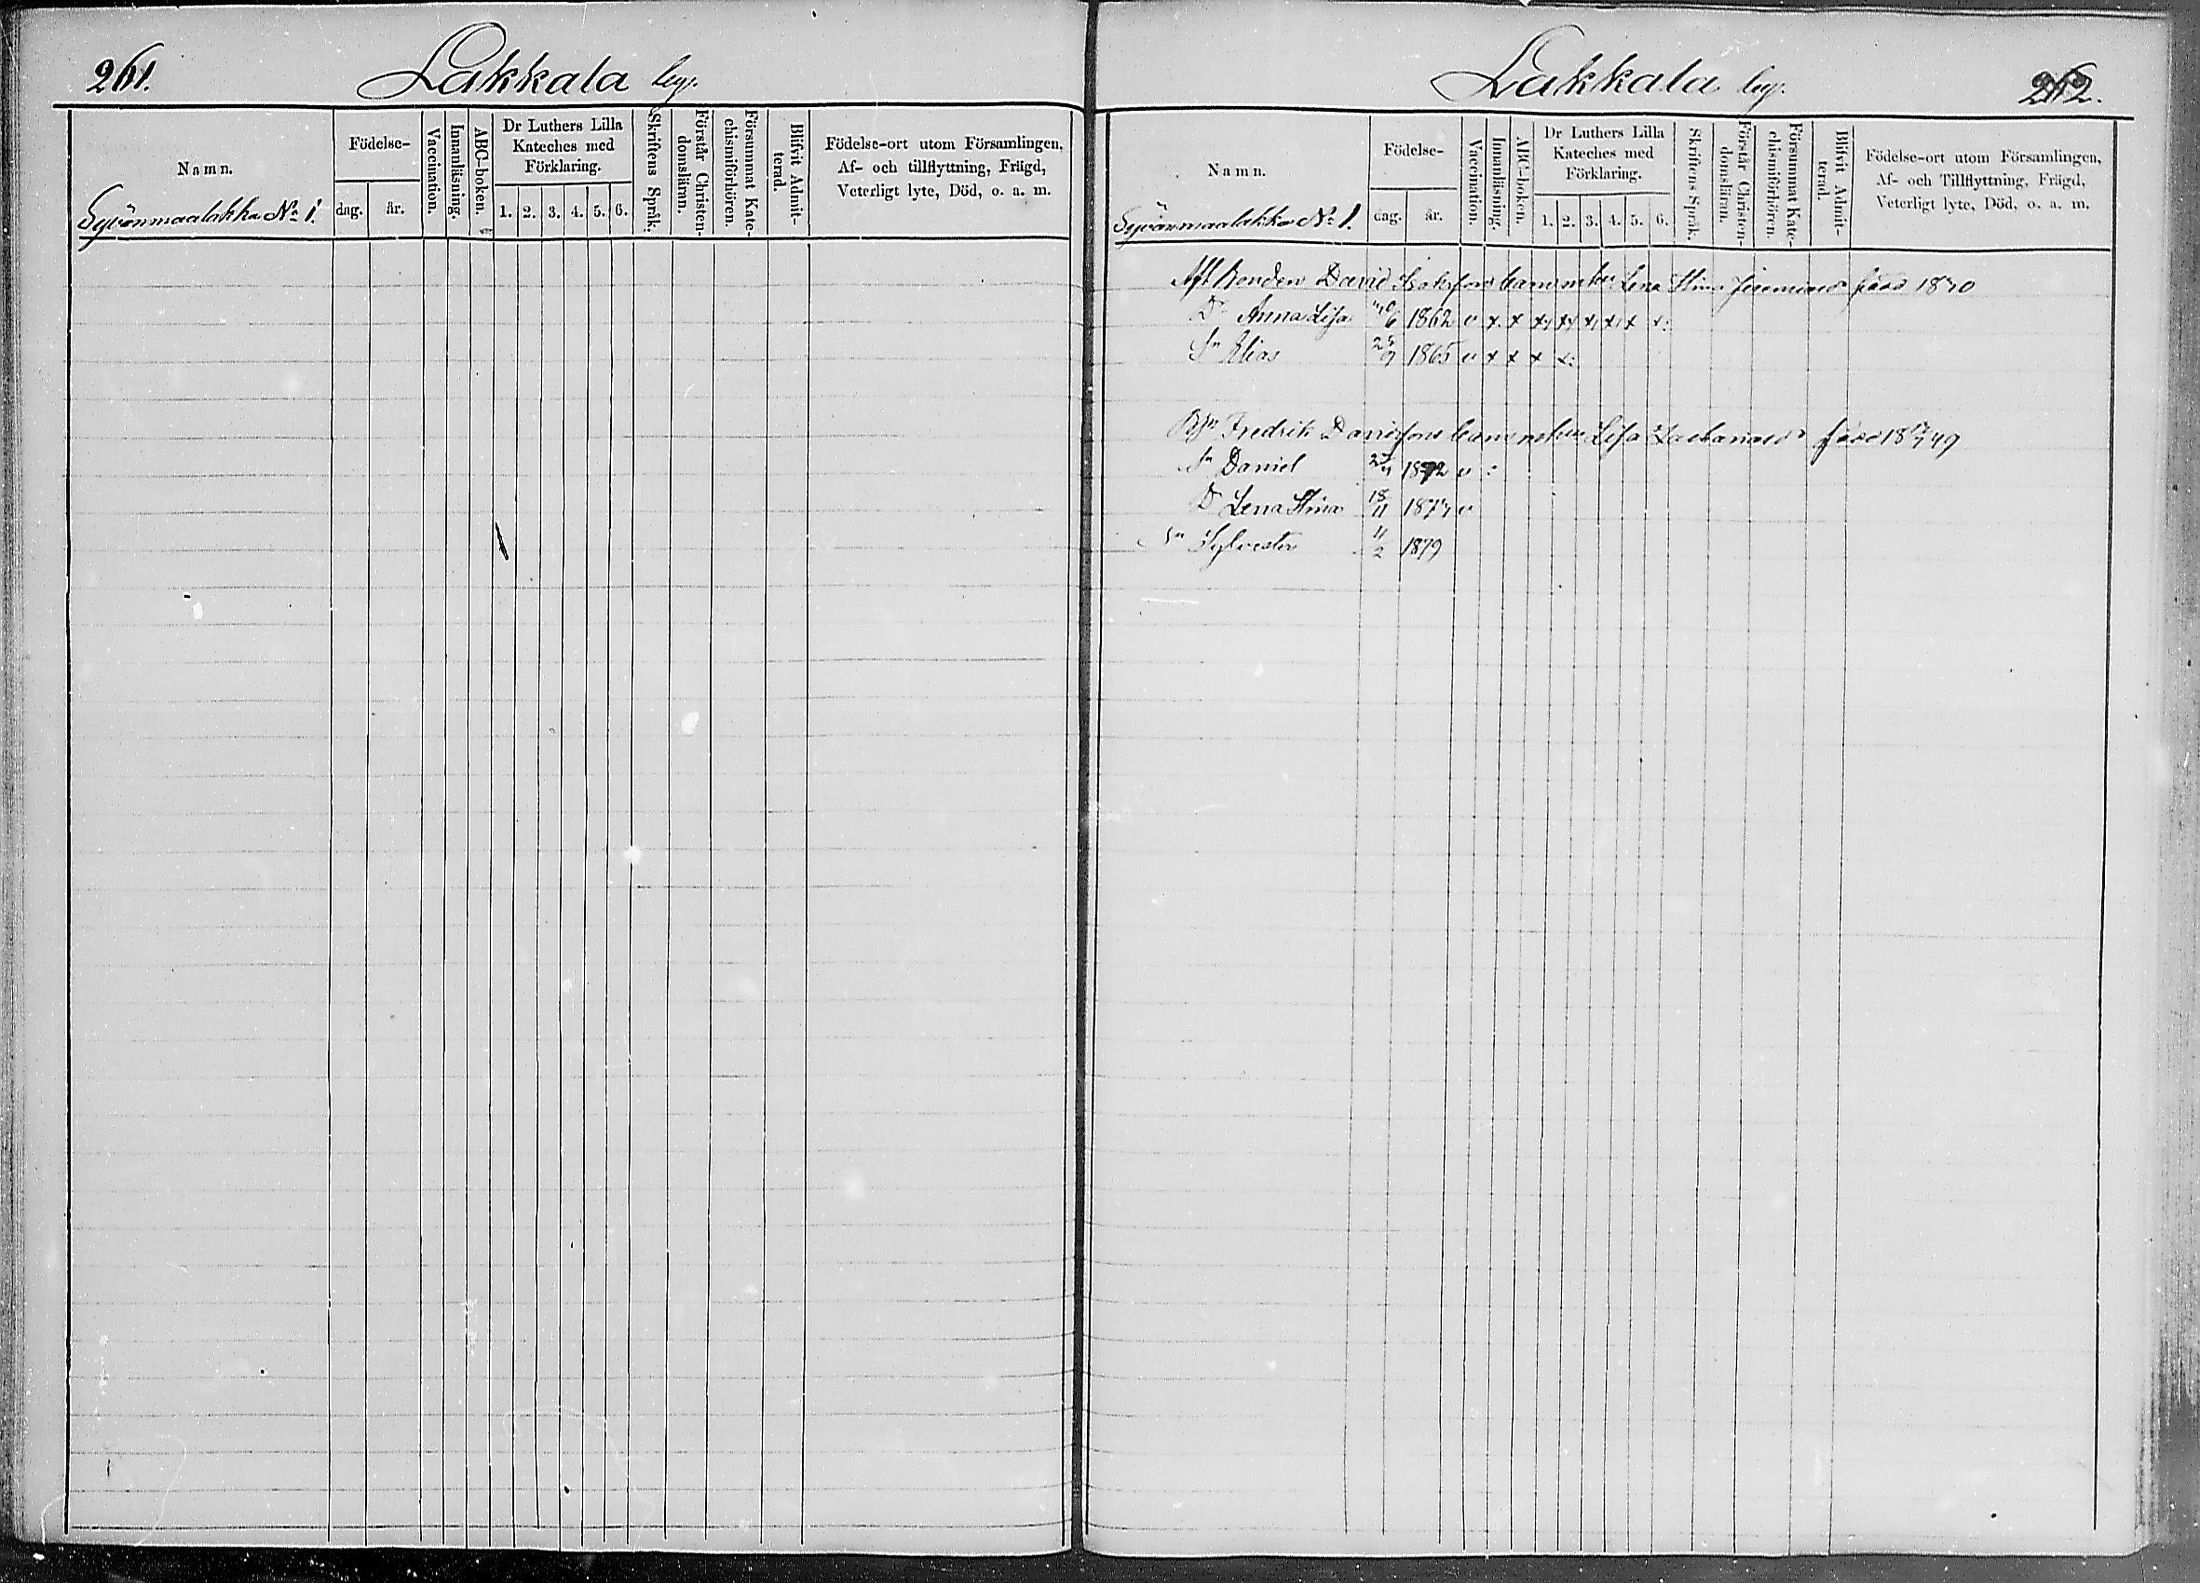 261.
Lakkala by.
Namn.
Syvänmaalakka No 1.
Födelse-
dag. år.
Vaccination.
Innanläsning.
ABC-boken.
Dr Luthers Lilla
Kateches med
Förklaring.
1. 2. 3. 4. 5. 6.
Skriftens Språk.
Förstår Christen-
domslärnn.
Försummat Kate-
chismiförhören.
Blifvit Admit-
terad.
Födelse-ort utom Församlingen,
Af- och tillflyttning, Frägd,
Veterligt lyte, Död, o. a. m.
Lakkala by.
262.
Namn.
Syvänmaalakka No 1.
Födelse-
dag. år.
Vaccination.
Innanläsning.
ABC-boken.
Dr Luthers Lilla
Kateches med
Förklaring.
1. 2. 3. 4. 5. 6.
Skriftens Språk.
Förstår Christen-
domsläran.
Försummat Kate-
chismiförhören.
Blifvit Admit-
terad.
Födelse-ort utom Församlingen,
Af- och Tillflyttning, Frägd,
Veterligt lyte, Död, o. a. m.
Bonden David Isaksons barn m hu Lena Stina
Dr Anna Lisa 1862 v x x
Sn Elias 1865 v x x x x:
Fredrik Davidsons barn m hu Lisa
Sn Daniel 1872 v :
Dr Lena Stina 18/11 187 v
Sn Sylvester 11/2 1879